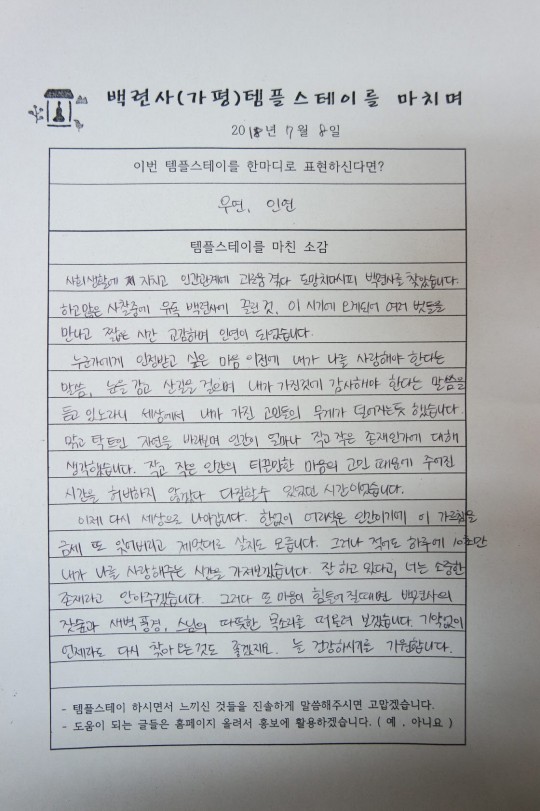 백련사(가평)템플스테이를 마치며
2018년 7월 8일
이번 템플스테이를 한마디로 표현하신다면?
우연, 인연
템플스테이를 마친 소감
사회생활에 지치고 인간관계에 괴로움 겪다 도망치다시피 백련사를 찾았습니다.
하고많은 사찰중에 유독 백련사에 끌린 것, 이 시기에 오게되어 여러 벗들을
만나고 짧은 시간 교감하며 인연이 되었습니다.
누군가에게 인정받고 싶은 마음 이전에 내가 나를 사랑해야 한다는
말씀, 눈을 감고 산길을 걸으며 내가 가진것에 감사해야 한다는 말씀을
듣고 있노라니 세상에서 내가 가진 고민들의 무게가 덜어지는듯 했습니다.
맑고 탁트인 자연을 바라보며 인간이 얼마나 작고 작은 존재인가에 대해
생각했습니다. 작고 작은 인간의 티끌만한 마음의 고민 때문에 주어진
시간을 허비하지 않겠다 다짐할수 있었던 시간이었습니다.
이제 다시 세상으로 나아갑니다. 한없이 어리석은 인간이기에 이 가르침을
금세 또 잊어버리고 제멋대로 살지도 모릅니다. 그러나 적어도 하루에 10초만
내가 나를 사랑해주는 시간을 가져보겠습니다. 잘 하고 있다고, 너는 소중한
존재라고 안아주겠습니다. 그러다 또 마음이 힘들어 질때면 백련사의
잣숲과 새벽 풍경, 스님의 따뜻한 목소리를 떠올려 보겠습니다. 기약없이
언제라도 다시 찾아 오는것도 좋겠지요. 늘 건강하시기를 기원합니다.
- 템플스테이 하시면서 느끼신 것들을 진솔하게 말씀해주시면 고맙겠습니다.
- 도움이 되는 글들은 홈페이지 올려서 홍보에 활용하겠습니다. ( 예 , 아니요 )